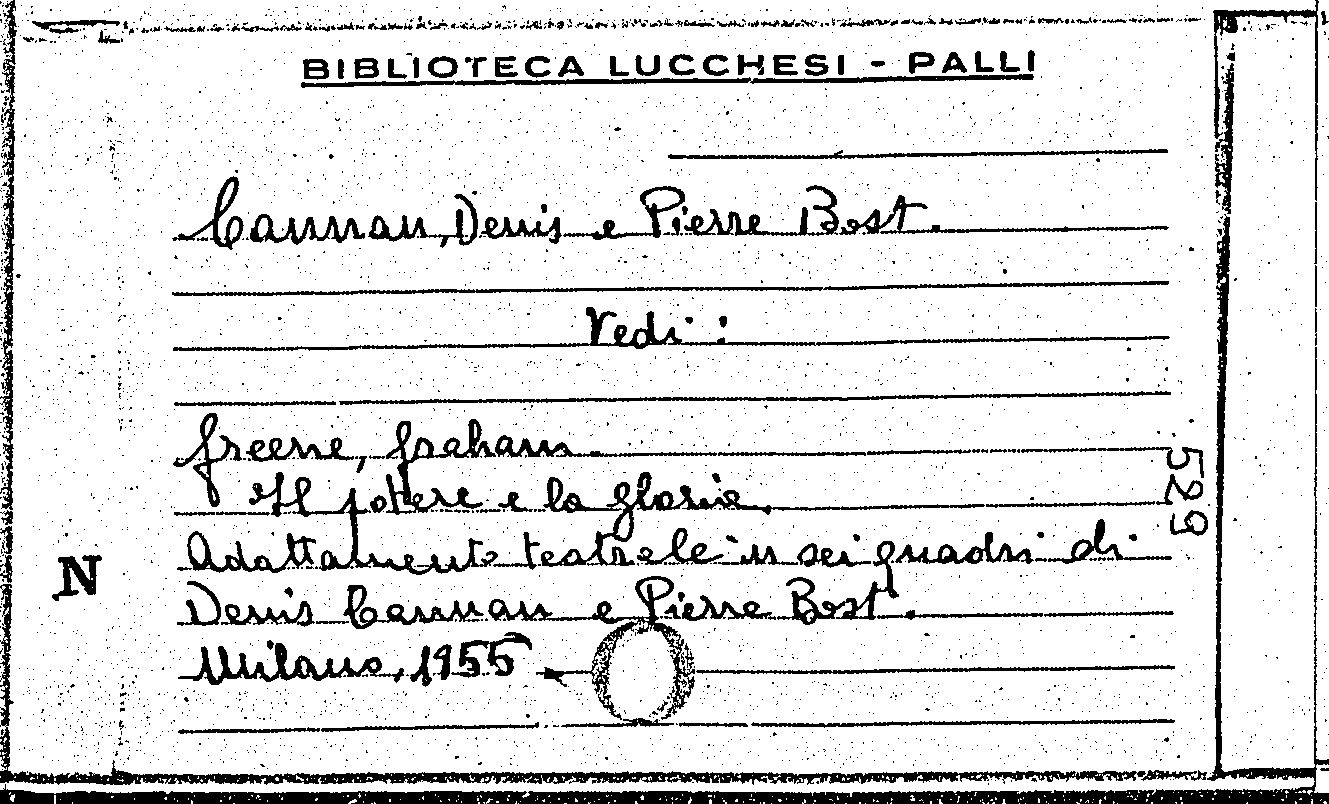 BIBLIOTECA LUCCHESI - PALLI
Cannan, Denis e Pierre Bost.
Vedi:
Greene, Graham.
Il potere e la gloria.
Adattamento teatrale in sei quadri di
Denis Cannan e Pierre Bost.
Milano, 1955
N
529